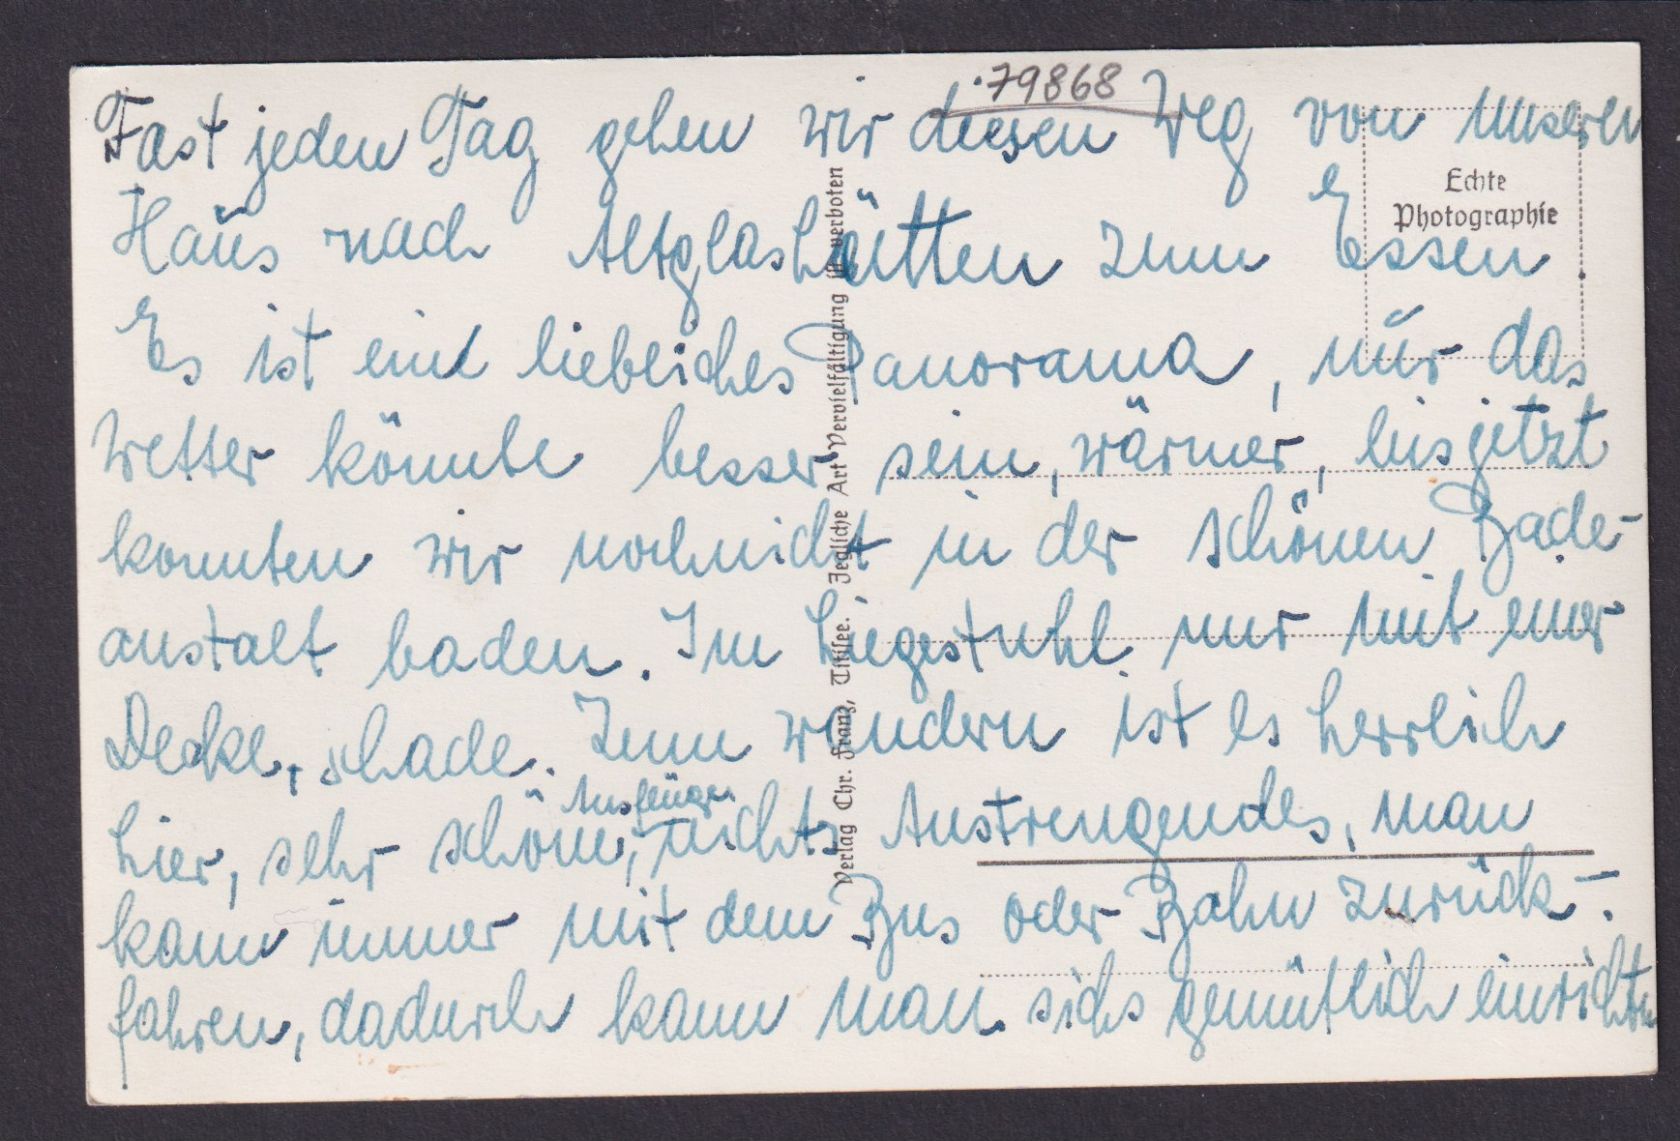 79868
Fast jeden Tag gehen wir diesen Weg von unseren
Haus nach Altglashütten zum Essen
Es ist ein liebliches Panorama, nur das
Wetter könnte besser sein, wärmer, bis jetzt
konnten wir noch nicht in der schönen Bade-
anstalt baden. Im Liegestuhl nur mit einer
Decke, schade. Zum wandern ist es herrlich
hier, sehr schöne Ausflüge, nichts Anstrengendes, man
kann immer mit dem Bus oder Bahn zurück-
fahren, dadurch kann man sichs gemütlich einrichten
Echte
Photographie
Verlag Chr. Franz, Titisee. Jegliche Art Vervielfältigung ist verboten